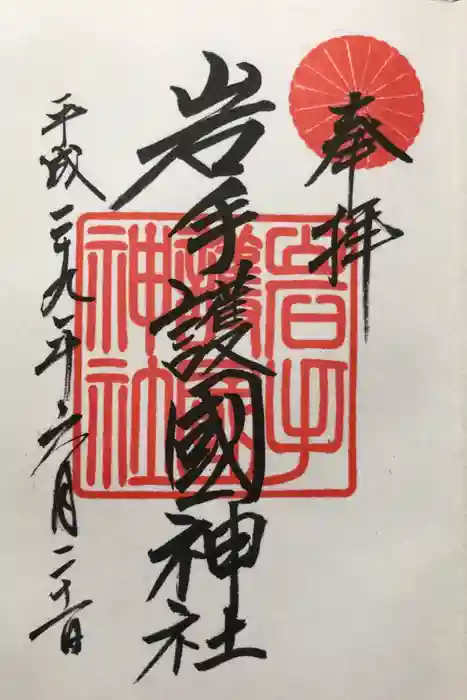 奉拝
岩手護國神社
平成二十九年六月二十一日
岩手
護國
神社